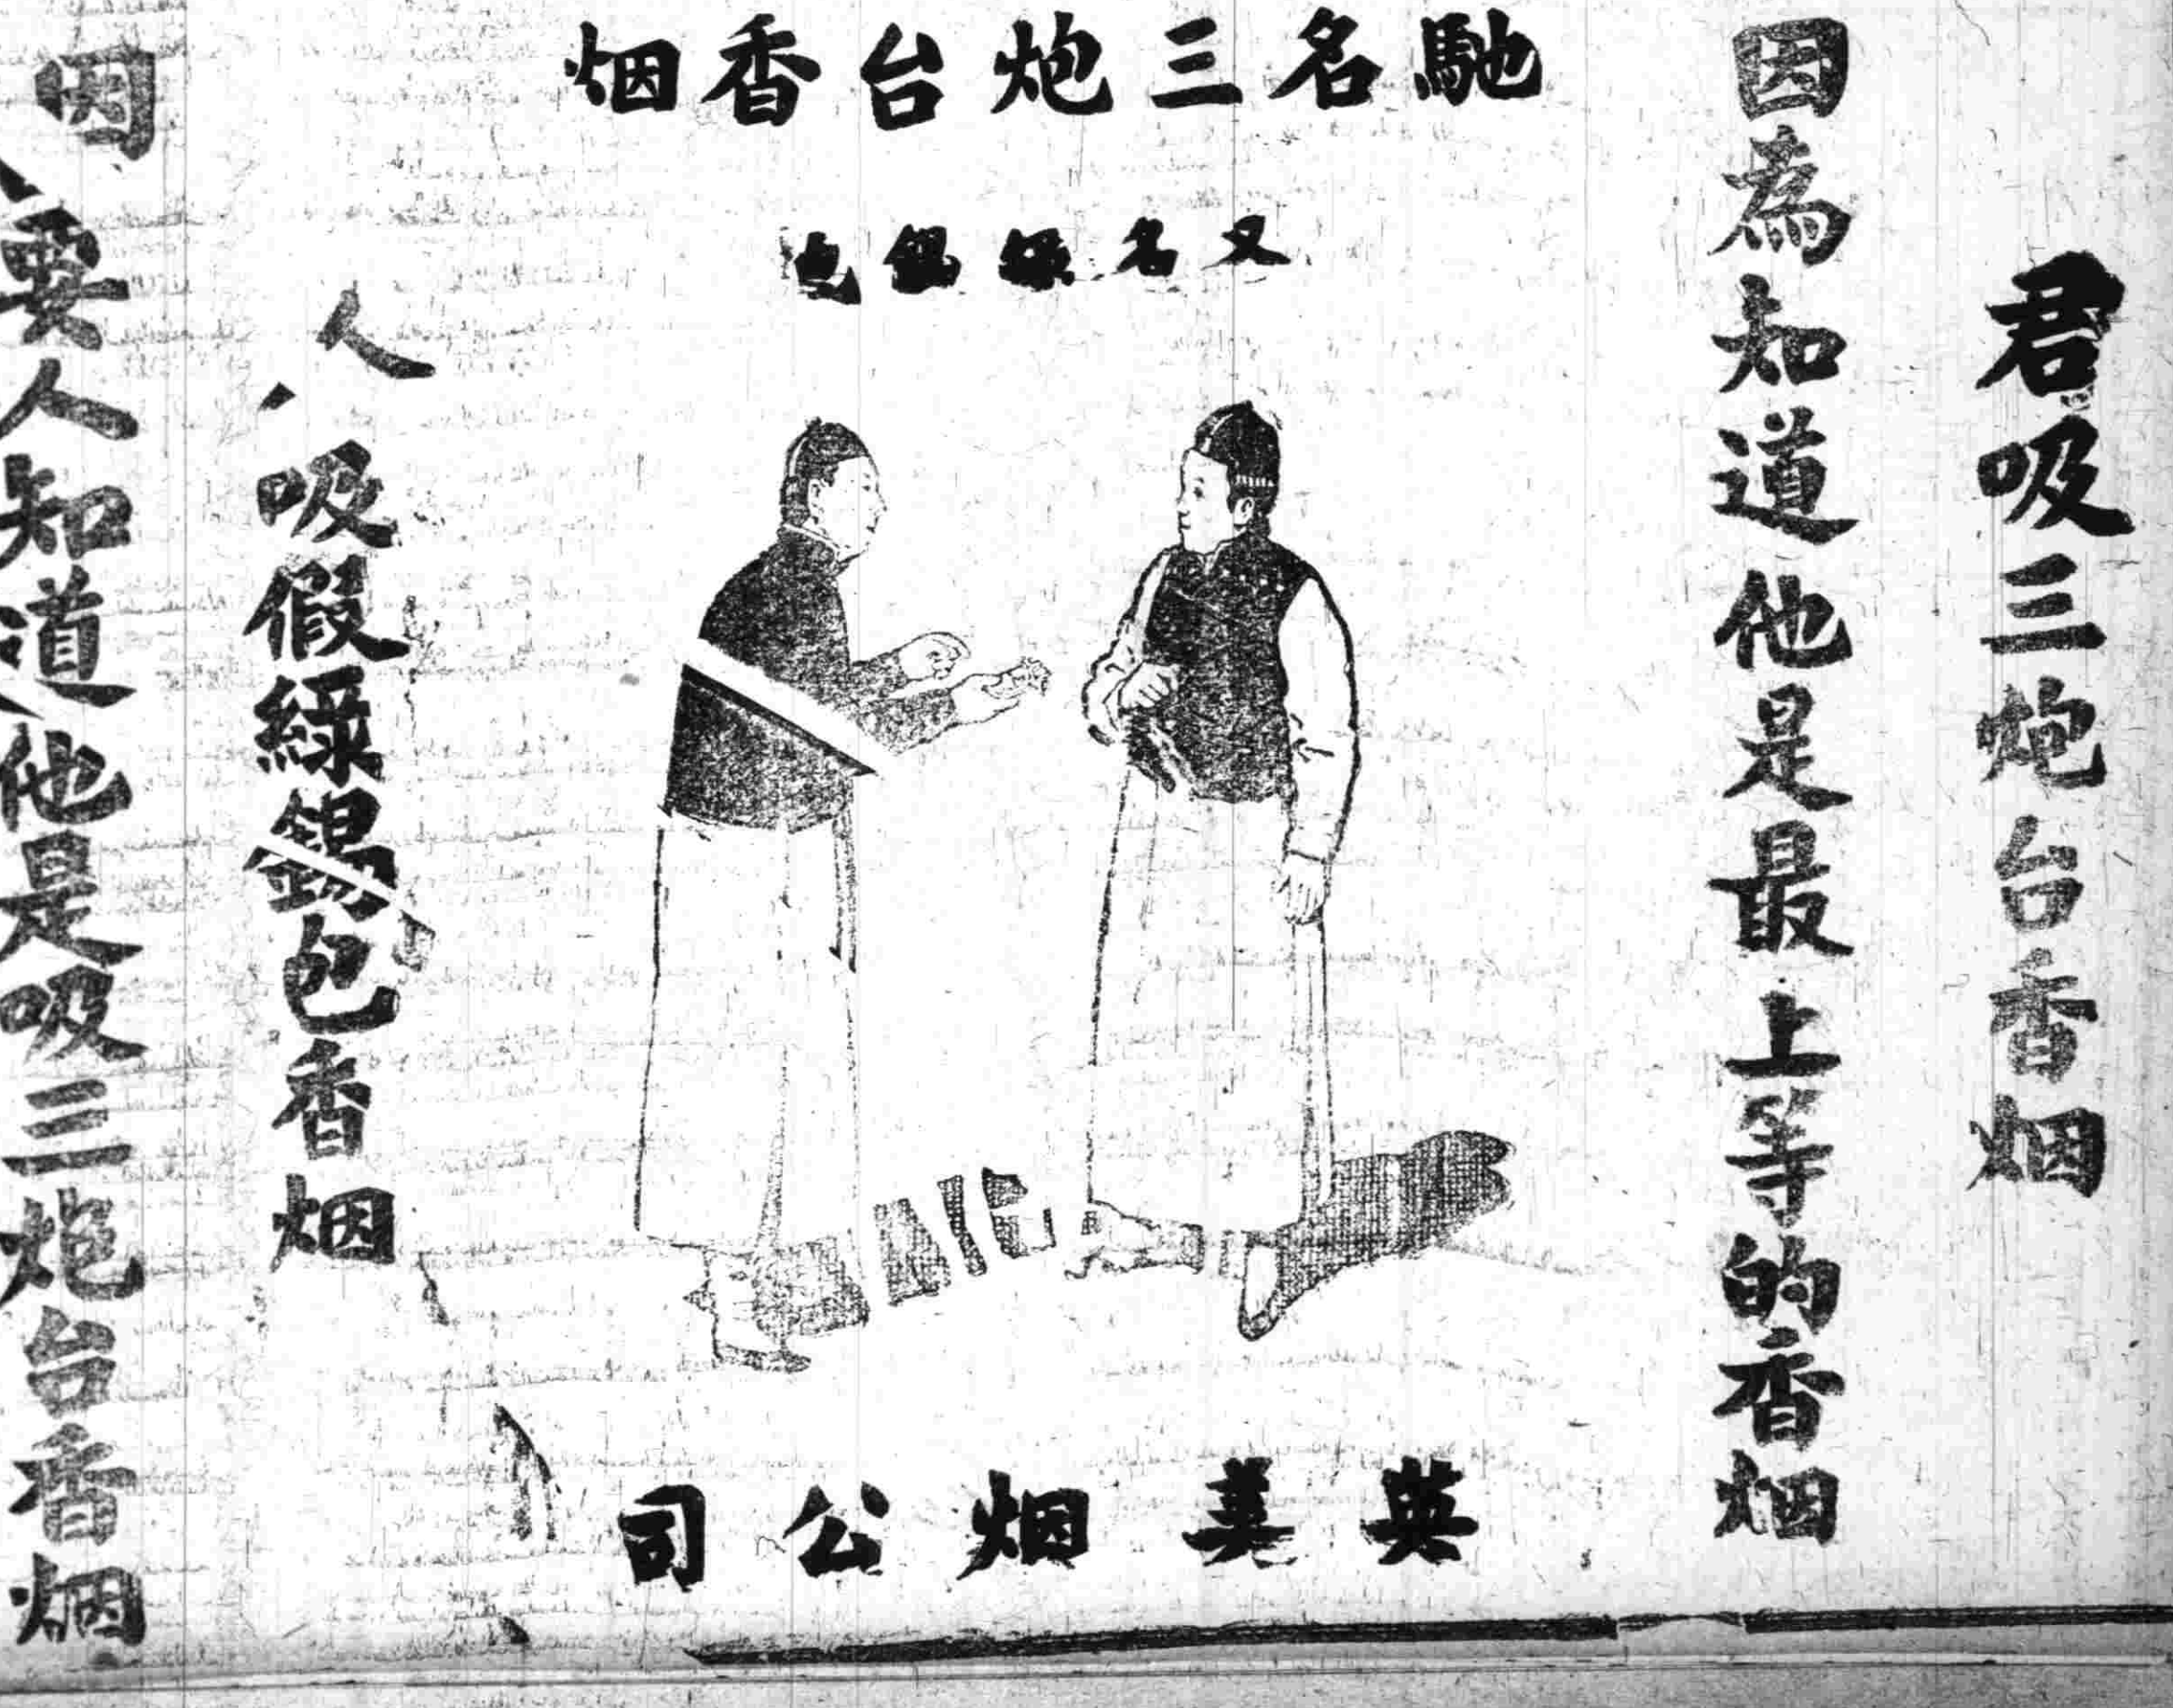 馳名三炮台香烟
又名綠錫包
君吸三炮台香烟
因為知道他是最上等的香烟
人吸假綠錫包香烟
因要人知道他是吸三炮台香烟
英美烟公司